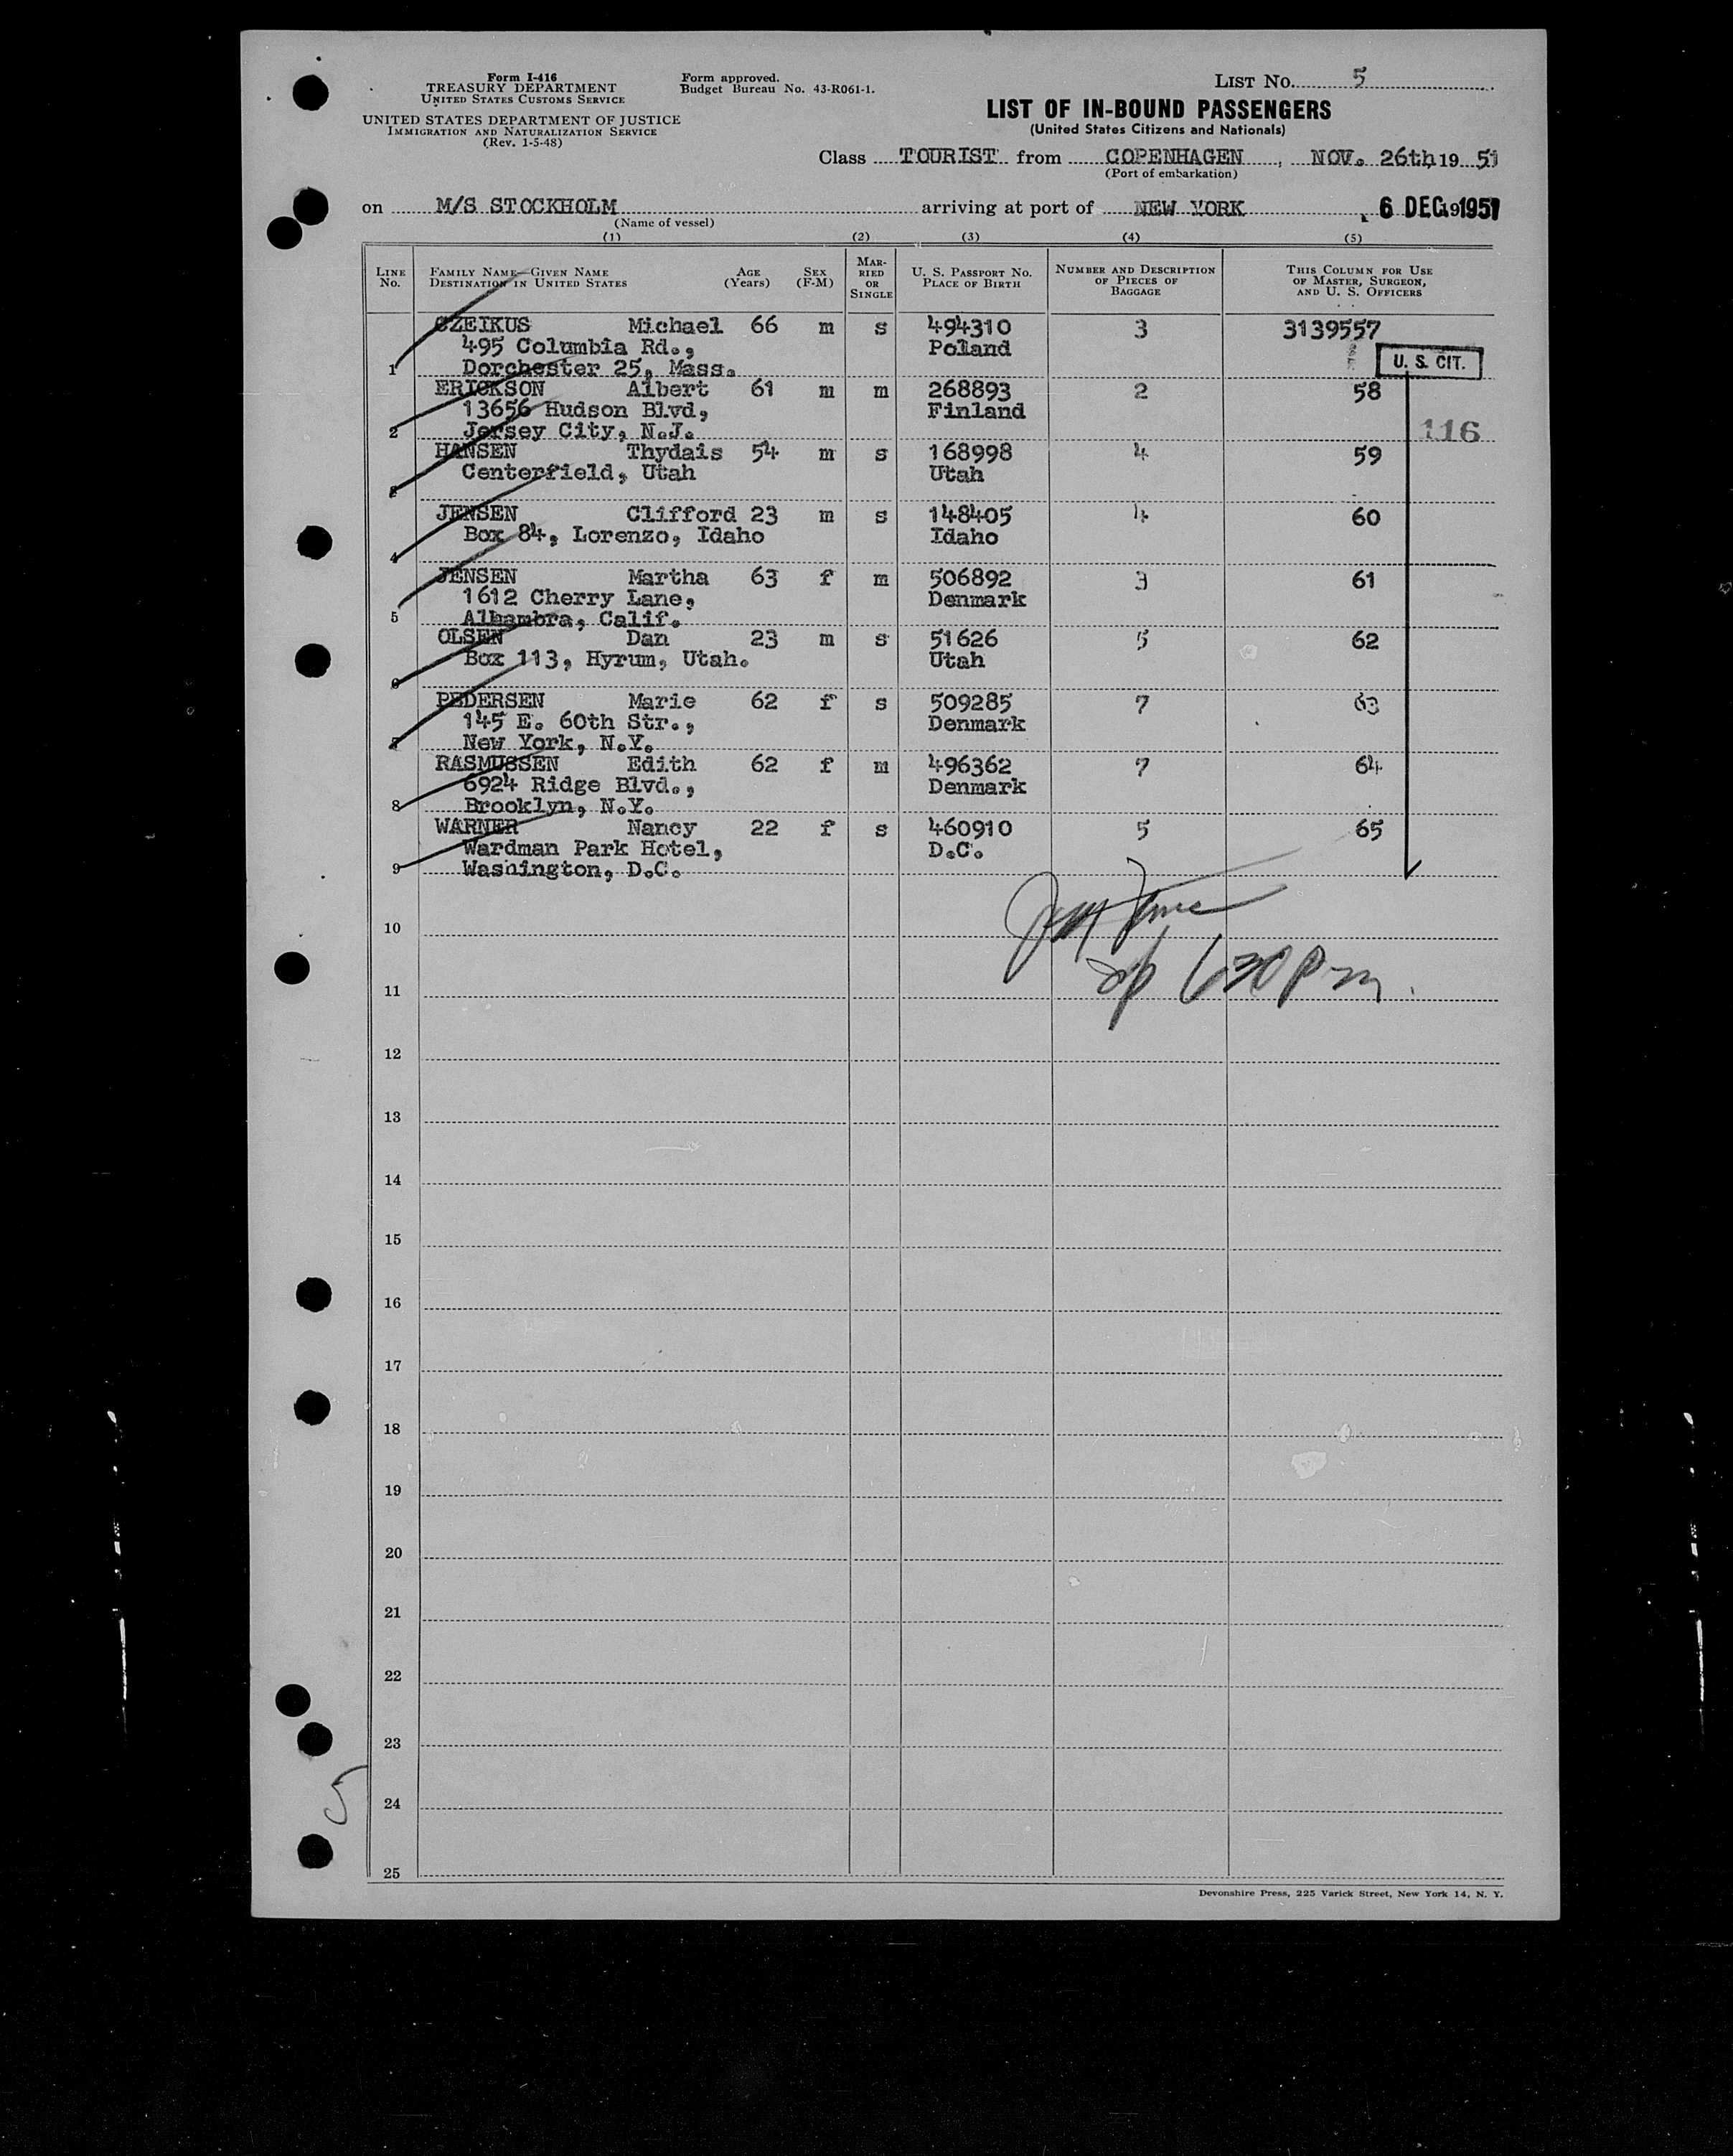 Form I-416
TREASURY DEPARTMENT
UNITED STATES CUSTOMS SERVICE
UNITED STATES DEPARTMENT OF JUSTICE
IMMIGRATION AND NATURALIZATION SERVICE
(Rev. 1-5-48)
Form approved.
Budget Bureau No. 43-R061-1.
LIST No. 5
LIST OF IN-BOUND PASSENGERS
(United States Citizens and Nationals)
Class TOURIST from COPENHAGEN, NOV. 26th, 19 51
(Port of embarkation)
on M/S STOCKHOLM arriving at port of NEW YORK 6 DEC 1951
(Name of vessel)
(1) (2) (3) (4) (5)
LINE No. FAMILY NAME—GIVEN NAME DESTINATION IN UNITED STATES AGE (Years) SEX (F-M) MARRIED OR SINGLE U. S. PASSPORT NO. PLACE OF BIRTH NUMBER AND DESCRIPTION OF PIECES OF BAGGAGE THIS COLUMN FOR USE OF MASTER, SURGEON, AND U. S. OFFICERS
CZEIKUS Michael 66 m s 494310 3 3139557
495 Columbia Rd., Poland
1 Dorchester 25, Mass. U. S. CIT.
ERICKSON Albert 61 m m 268893 2 58
13656 Hudson Blvd, Finland
2 Jersey City, N.J. 116
HANSEN Thydais 54 m s 168998 4 59
Centerfield, Utah Utah
3
JENSEN Clifford 23 m s 148405 4 60
Box 84, Lorenzo, Idaho Idaho
4
JENSEN Martha 63 f m 506892 3 61
1612 Cherry Lane, Denmark
5 Alhambra, Calif.
OLSEN Dan 23 m s 51626 5 62
Box 113, Hyrum, Utah. Utah
6
PEDERSEN Marie 62 f s 509285 7 63
145 E. 60th Str., Denmark
7 New York, N.Y.
RASMUSSEN Edith 62 f m 496362 7 64
6924 Ridge Blvd., Denmark
8 Brooklyn, N.Y.
WARNER Nancy 22 f s 460910 5 65
Wardman Park Hotel, D.C.
9 Washington, D.C.
10
630 pm
11
12
13
14
15
16
17
18
19
20
21
22
23
24
25
Devonshire Press, 225 Varick Street, New York 14, N. Y.